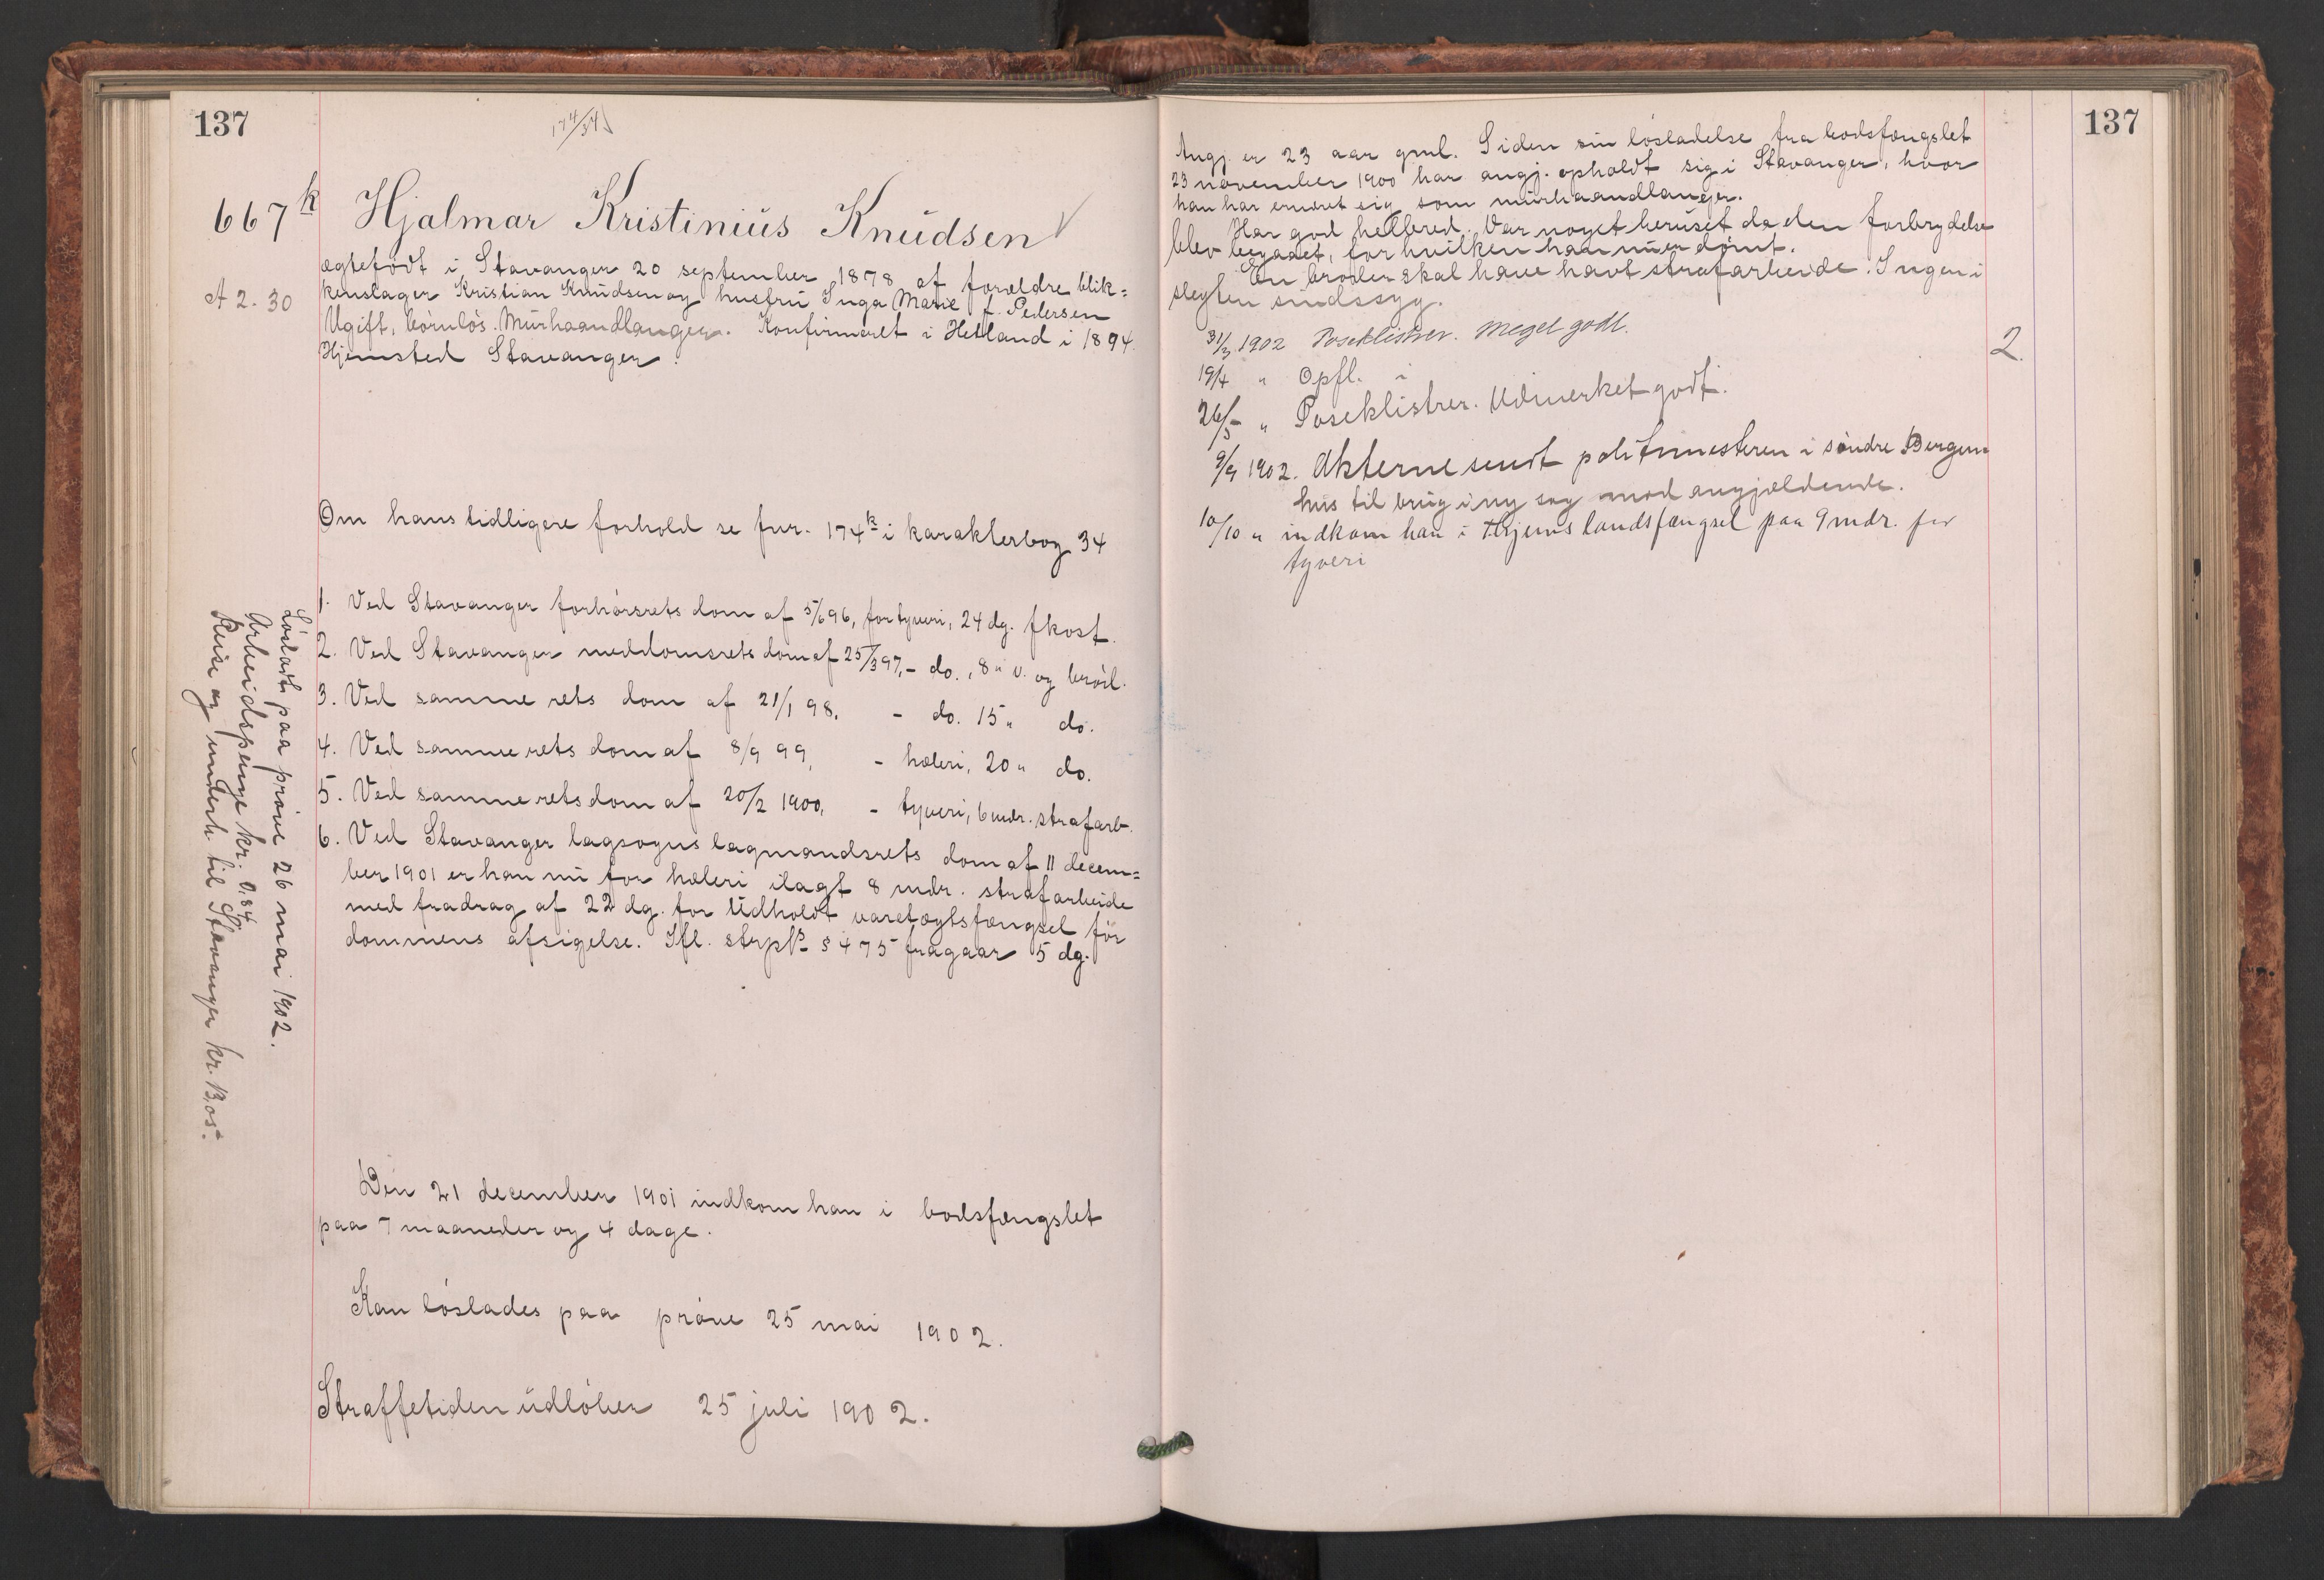 137
174/34
667k Hjalmar Kristinius Knudsen
A 2. 30
ægtefødt i Stavanger 20 september 1878 af forældre blik=
kenslager Kristian Knudsen og husfru Inga Marie f. Pedersen
Ugift, børnløs. Murhaandlanger. Konfirmeret i Hetland i 1894.
Hjemsted Stavanger.
Om hans tidligere forhold se fnr. 174k i karakterbog 34
1. Ved Stavanger forhørsrets dom af 5/6 96, for tyveri, 24 dg. fkost.
2. Ved Stavanger meddomsrets dom af 25/3 97, - do., 8 " v. og brød.
3. Ved samme rets dom af 21/1 98, - do. 15 " do.
4. Ved samme rets dom af 8/9 99, - hæleri, 20 " do.
5. Ved samme rets dom af 20/2 1900, - tyveri, 6 mdr. strafarb.
6. Ved Stavanger lagsogns lagmandsrets dom af 11 decem=
ber 1901 er han nu for hæleri ilagt 8 mdr. strafarbeide
med fradrag af 22 dg. for udholdt varetægtsfængsel før
dommens afsigelse. Ifl. strpl. § 475 fragaar 5 dg.
Løsladt paa prøve 26 mai 1902.
Arbeidspenge kr. 0,84
Reise og underh. til Stavanger kr. 13,05.
Den 21 december 1901 indkom han i bodsfængslet
paa 7 maaneder og 4 dage.
Kan løslades paa prøve 25 mai 1902.
Straffetiden udløber 25 juli 1902.
137
Angj. er 23 aar gml. Siden sin løsladelse fra bodsfængslet
23 november 1900 har angj. opholdt sig i Stavanger, hvor
han har ernæret sig som murhaandlanger.
Har god helbred. Var noget beruset da den forbrydelse
blev begaaet, for hvilken han nu er dømt.
En broder skal have havt strafarbeide. Ingen i
slegten sindssyg.
31/3 1902 Poseklistrer. Meget godt.
2.
19/4 " Opfl. i
26/5 " Poseklistrer. Udmerket godt.
9/9 1902. Akterne sendt politimesteren i søndre Bergen
hus til brug i ny sag mod angjældende.
10/10 " indkom han i Thjems landsfængsel paa 9 mdr. for
tyveri